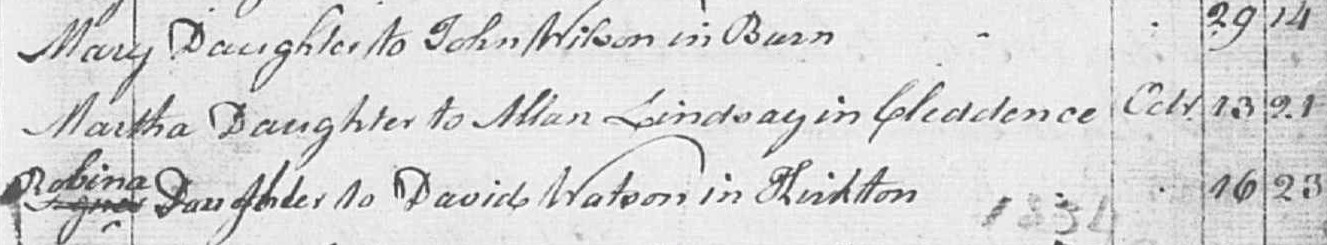 Mary Daughter to John Wilson in Burn - . 29 14
Martha Daughter to Allan Lindsay in Cleddence Octr. 13 21
Robina
Agnes Daughter to David Watson in Kirkton . 16 23